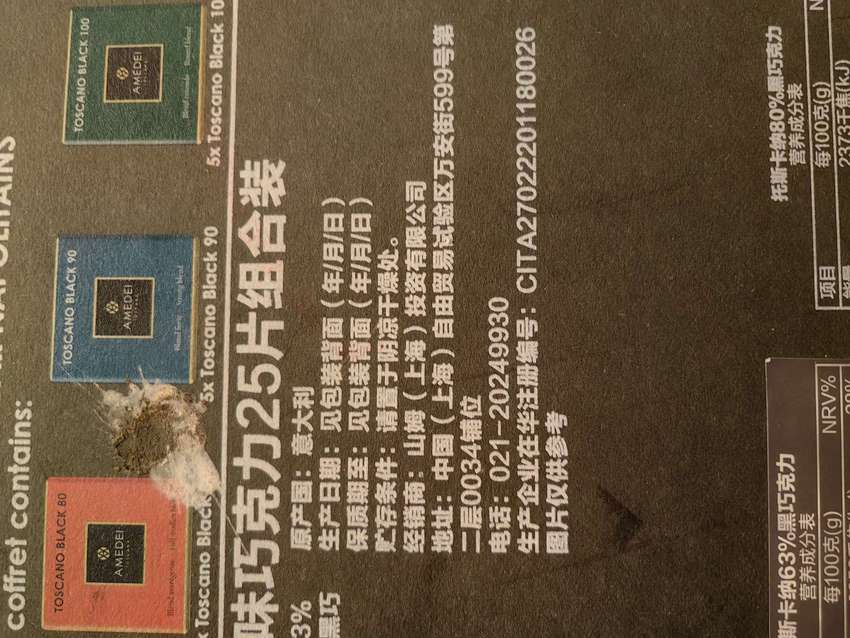 NAPOLITAINS
coffret contains:
TOSCANO BLACK 80
AMEDEI
TOSCANO BLACK 90
AMEDEI
Strong blend
TOSCANO BLACK 100
AMEDEI
x Toscano Black
5x Toscano Black 90
5x Toscano Black 10
味巧克力25片组合装
3%
黑巧
原产国：意大利
生产日期：见包装背面（年/月/日）
保质期至：见包装背面（年/月/日）
贮存条件：请置于阴凉干燥处。
经销商：山姆（上海）投资有限公司
地址：中国（上海）自由贸易试验区万安街599号第
二层0034铺位
电话：021-20249930
生产企业在华注册编号：CITA27022201180026
图片仅供参考
斯卡纳63%黑巧克力
营养成分表
每100克(g)
NRV%
托斯卡纳80%黑巧克力
营养成分表
项目
每100克(g)
N
能量
2373千焦(kJ)